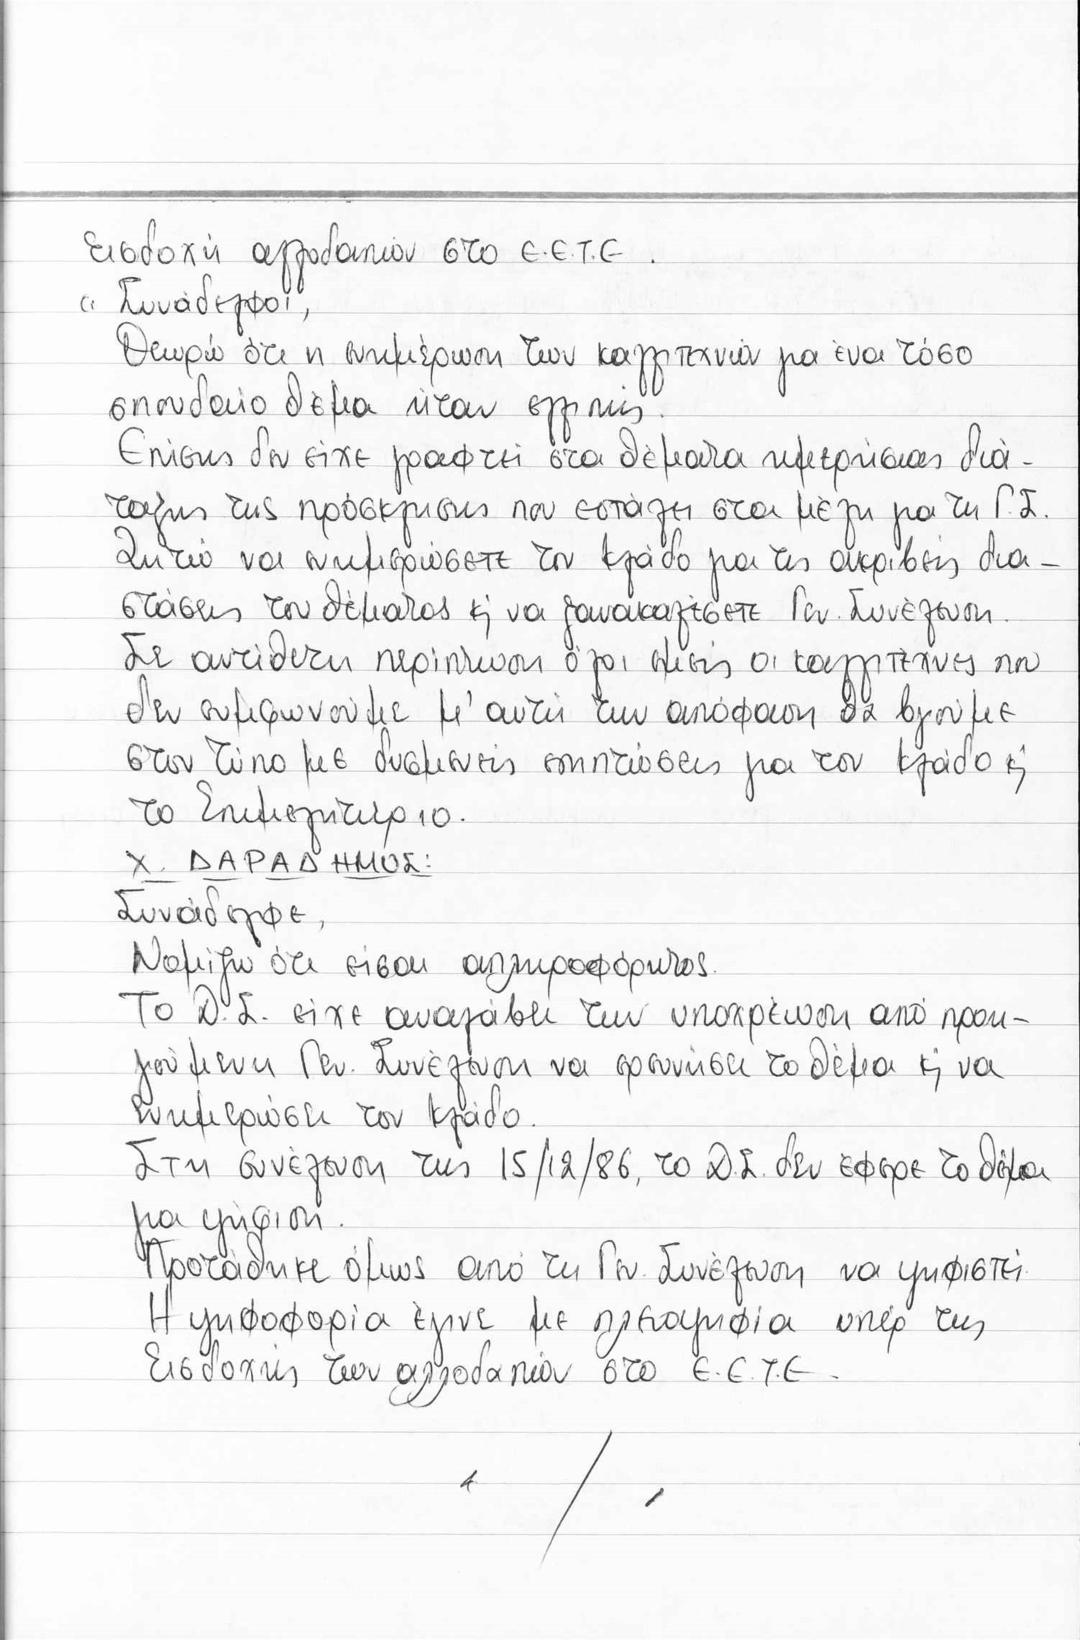 Εισδοχή αλλοδαπών στο Ε.Ε.Τ.Ε.
"Συνάδελφοι,
Θεωρώ ότι η ενημέρωση των καλλιτεχνών για ένα τόσο
σπουδαίο θέμα ήταν ελλιπής.
Επίσης δεν είχε γραφτεί στα θέματα ημερήσιας διά-
ταξης της πρόσκλησης που εστάλει στα μέλη για τη Γ.Σ.
Ζητώ να ενημερώσετε τον κλάδο για τις ακριβείς δια-
στάσεις του θέματος κ' να ξανακαλέσετε Γεν. Συνέλευση.
Σε αντίθετη περίπτωση όλοι εμείς οι καλλιτέχνες που
δεν συμφωνούμε μ' αυτή την απόφαση θα βγούμε
στον τύπο με δυσμενείς επιπτώσεις για τον κλάδο κ'
το Επιμελητήριο.
Χ. ΔΑΡΑΔΗΜΟΣ:
Συνάδελφε,
Νομίζω ότι είσαι απληροφόρητος.
Το Δ.Σ. είχε αναλάβει την υποχρέωση από προη-
γούμενη Γεν. Συνέλευση να ερευνήσει το θέμα κ' να
ενημερώσει τον κλάδο.
Στη συνέλευση της 15/12/86, το Δ.Σ. δεν έφερε το θέμα
για ψήφιση.
Προτάθηκε όμως από τη Γεν. Συνέλευση να ψηφιστεί.
Η ψηφοφορία έγινε με πλειοψηφία υπέρ της
Εισδοχής των αλλοδαπών στο Ε.Ε.Τ.Ε.